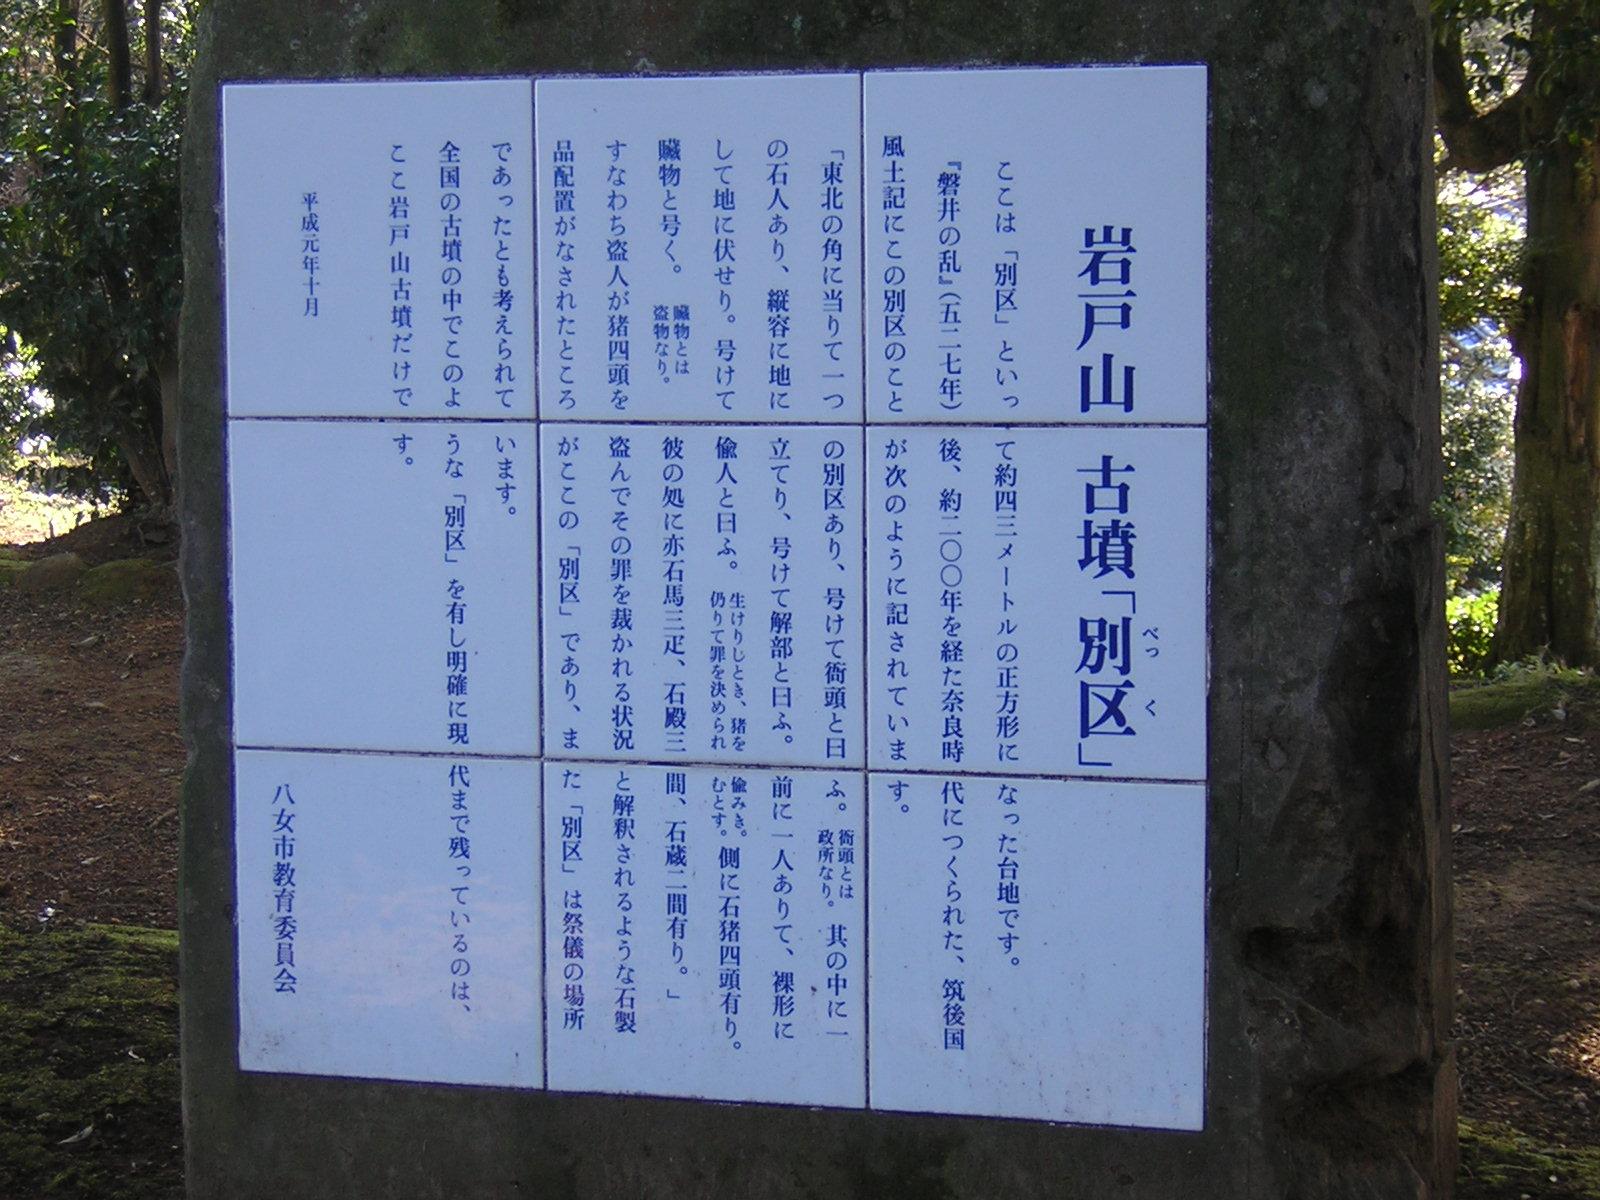 岩戸山 古墳「別区」
べっく
ここは「別区」といって約四三メートルの正方形になった台地です。
『磐井の乱』(五二七年)後、約二〇〇年を経た奈良時代につくられた、筑後国
風土記にこの別区のことが次のように記されています。
「東北の角に当りて一つの別区あり、号けて衙頭と曰ふ。衙頭とは政所なり。其の中に一
の石人あり、縦容に地に立てり、号けて解部と曰ふ。前に一人ありて、裸形に
して地に伏せり。号けて偸人と曰ふ。生けりしとき、猪を仍りて罪を決められ偸みき。むとす。側に石猪四頭有り。
贓物と号く。贓物とは盗物なり。彼の処に亦石馬三疋、石殿三間、石蔵二間有り。」
すなわち盗人が猪四頭を盗んでその罪を裁かれる状況と解釈されるような石製
品配置がなされたところがここの「別区」であり、また「別区」は祭儀の場所
であったとも考えられています。
全国の古墳の中でこのような「別区」を有し明確に現代まで残っているのは、
ここ岩戸山古墳だけです。
平成元年十月
八女市教育委員会